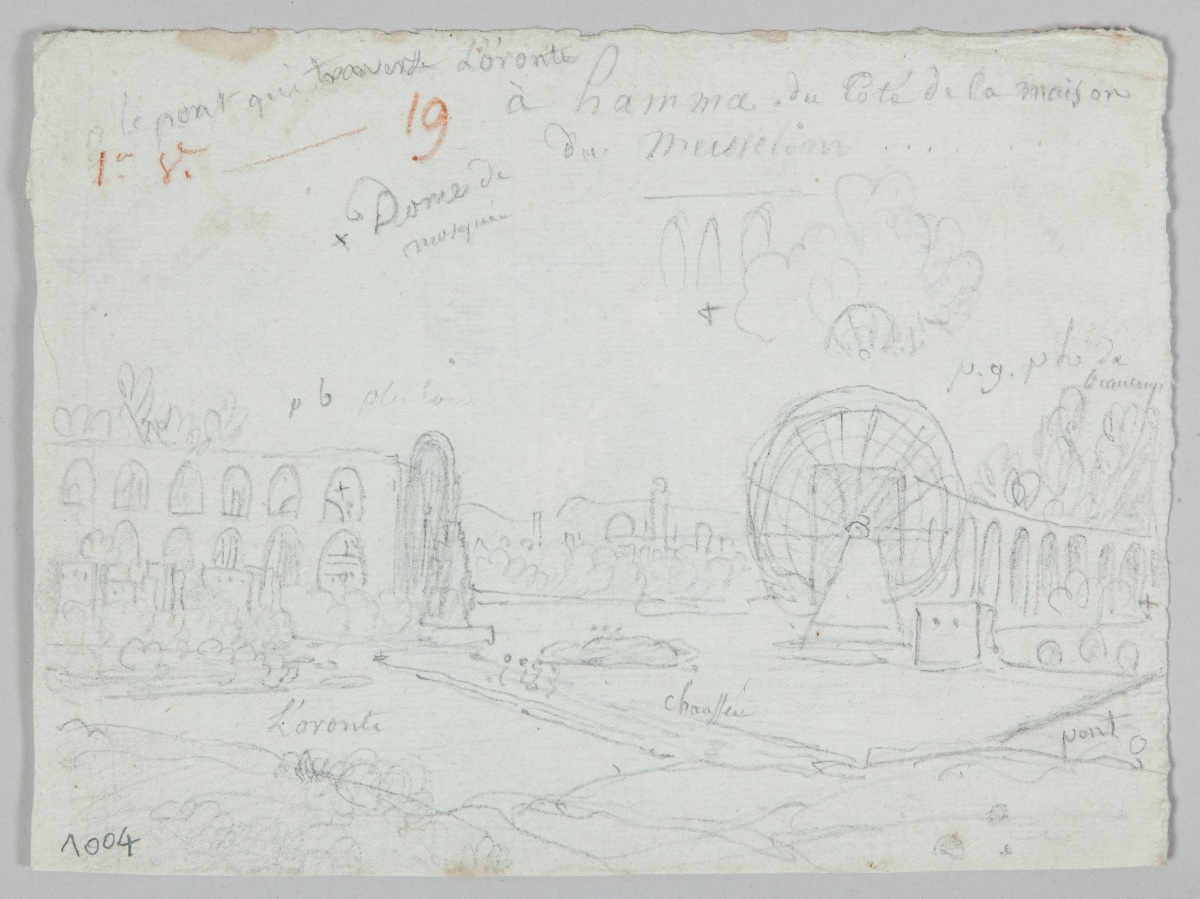 le pont qui traverse L'oronte
à hamma du Coté de la maison
du
1.re 8.e 19
Dome de
mosquée
p b plus loin
p.g. plus de
beaucoup
L'oronte
chaussée
pont
1004